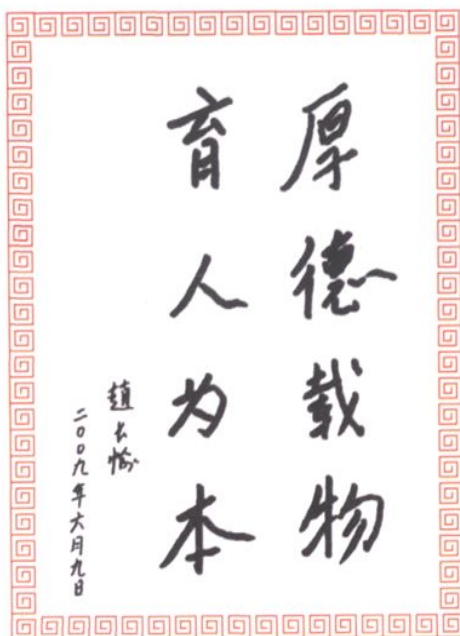 厚德载物
育人为本
趙长愉
二〇〇九年六月九日